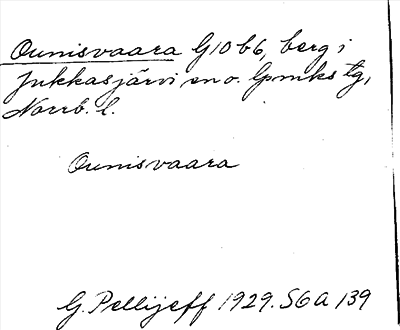 Ounisvaara G10 b6, berg i
Jukkasjärvi sn o. lpmks tg,
Norrb. l.
Ounisvaara
G. Pellijeff 1929. S6A 139